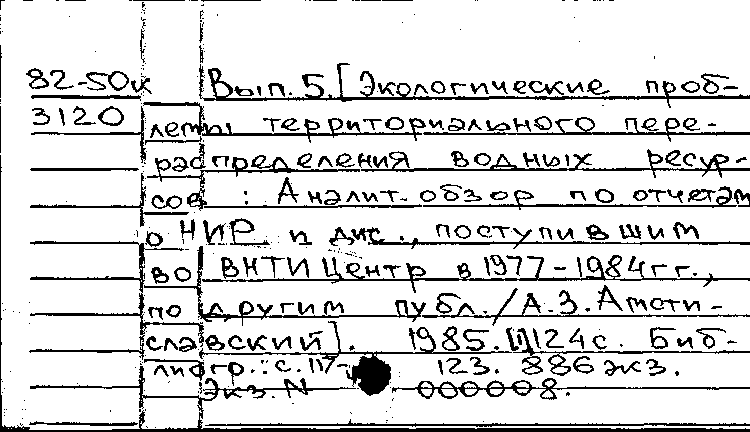 82-50к Вып. 5. [Экологические проб-
3120 лемы территориального пере-
распределения водных ресур-
сов : Аналит. обзор по отчетам
о НИР и дис., поступившим
во ВНТИЦентр в 1977-1984 гг.,
по другим публ. / А.З. Амсти-
славский]. 1985. [1] 124 с. Биб-
лиогр.: с. 117- 123. 886 экз.
Экз. N 000008.